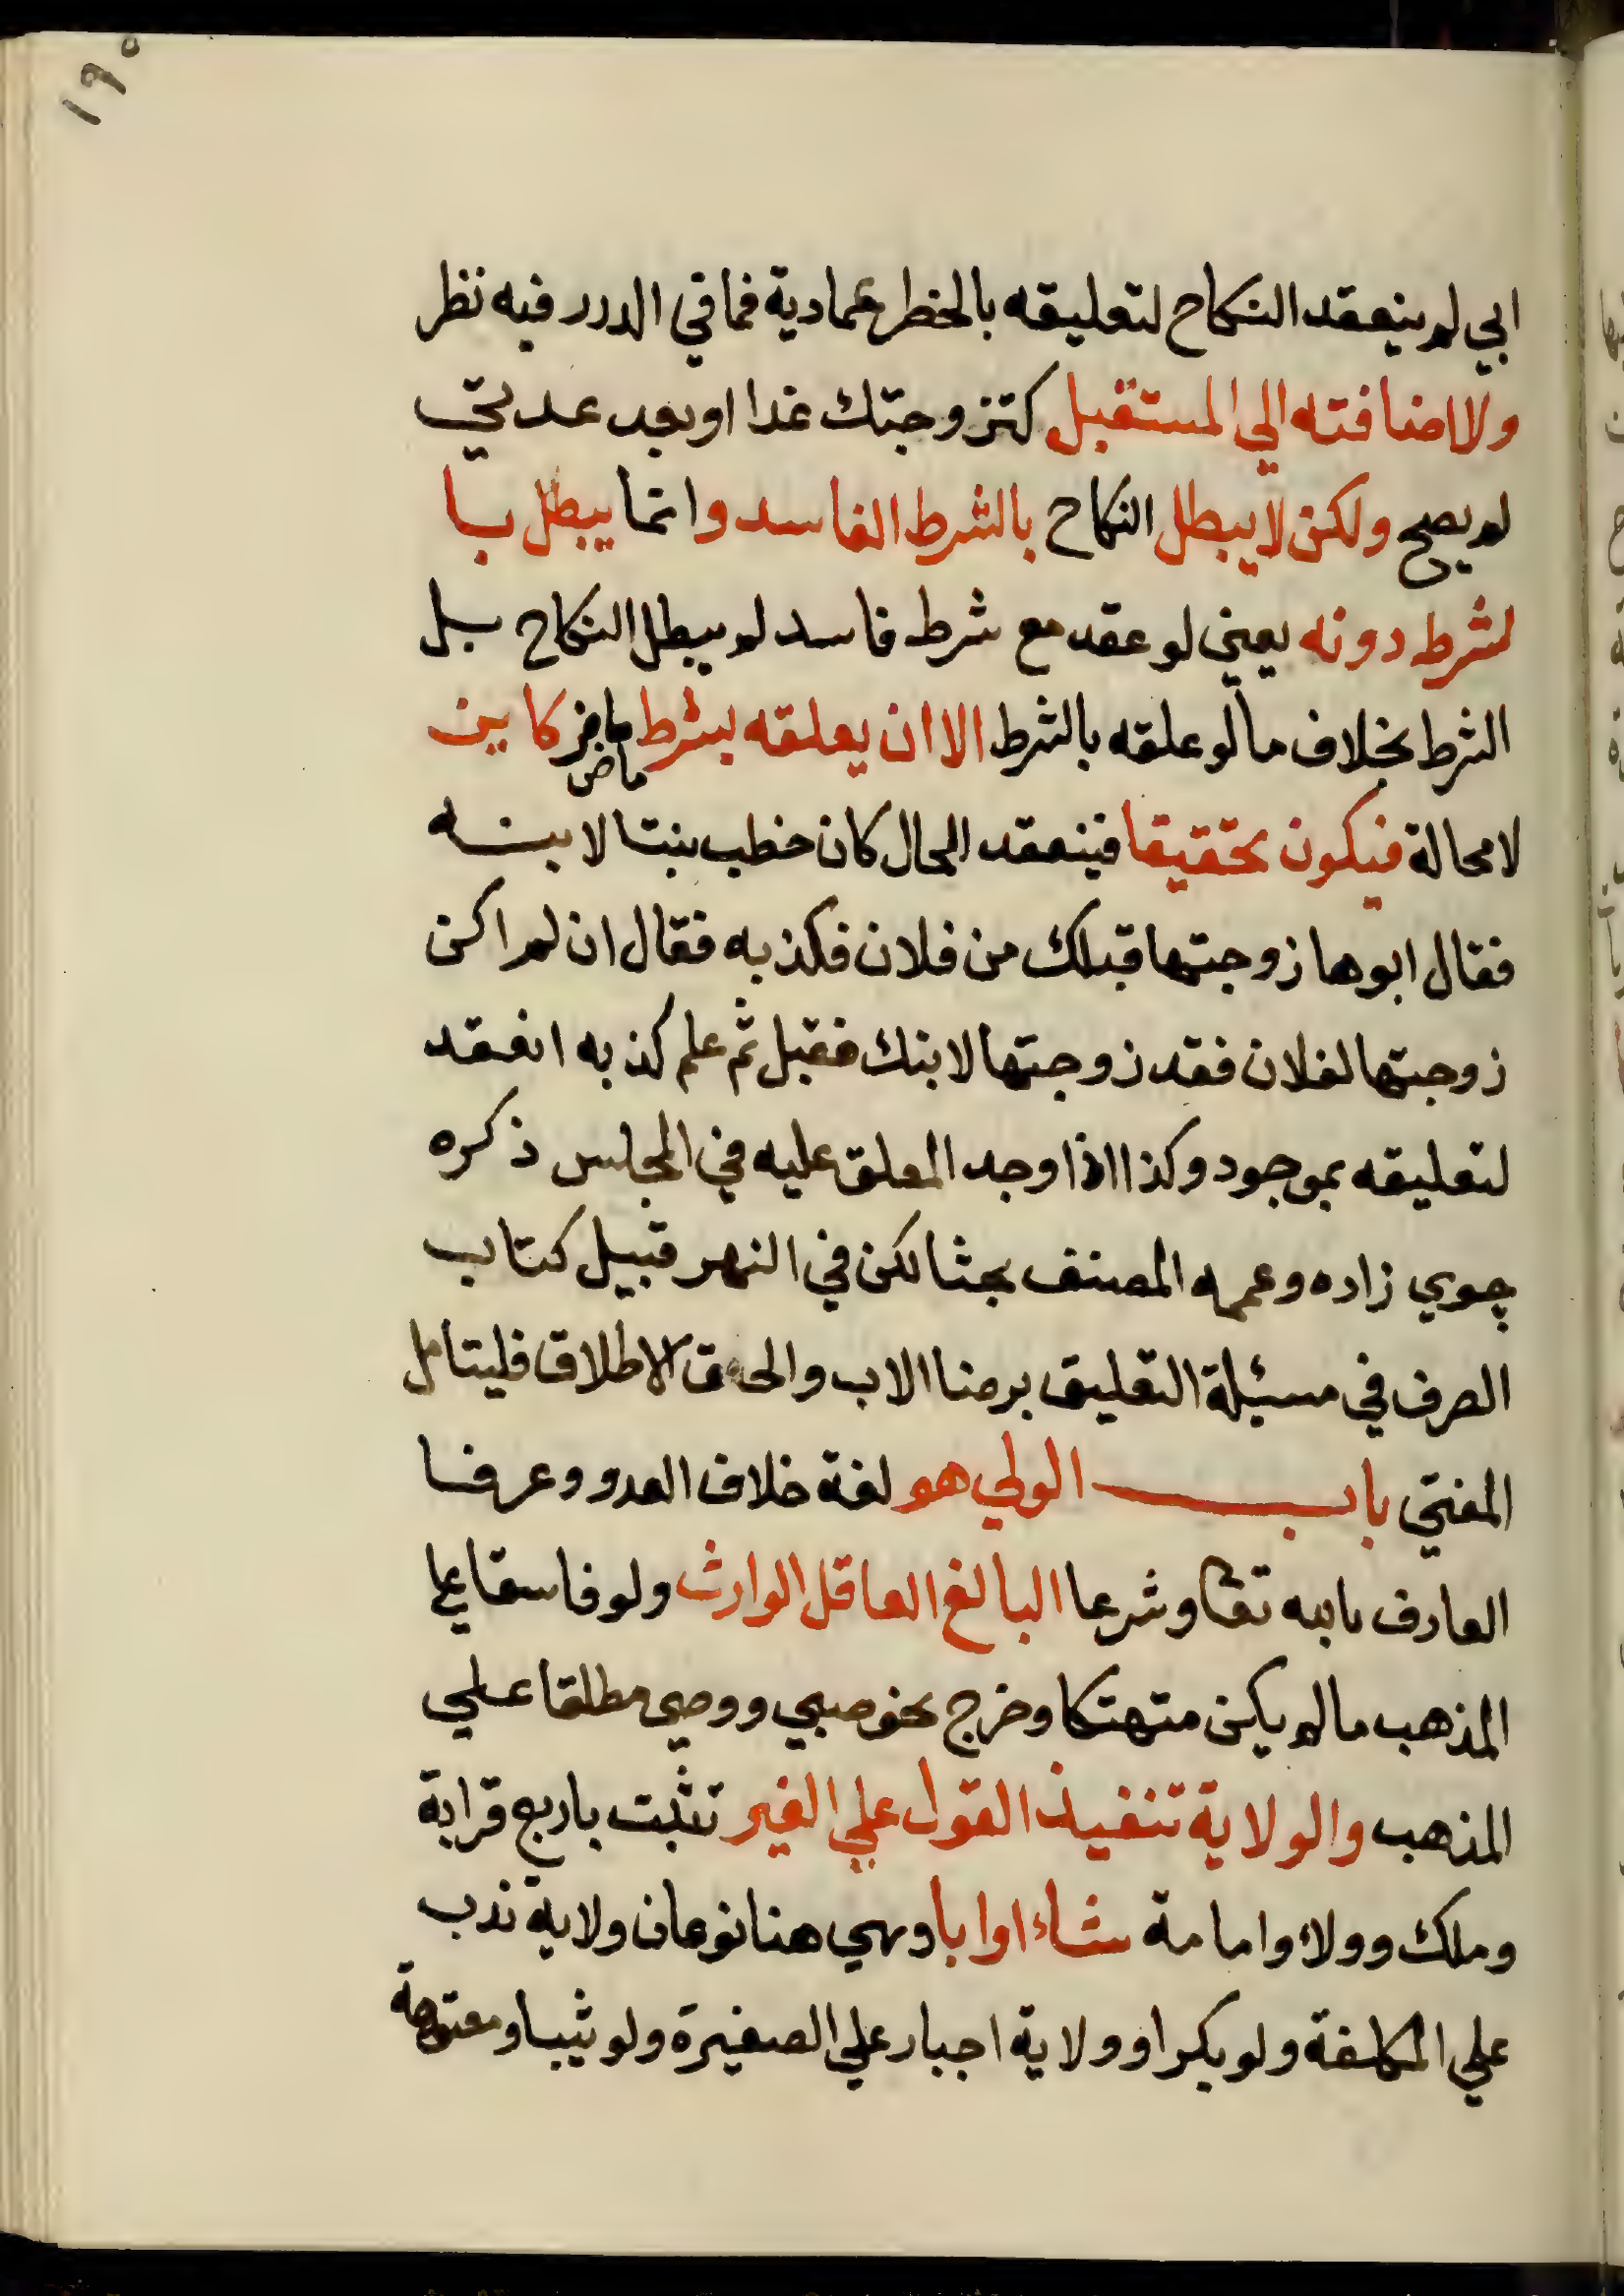 ١٩٥
ابي لم ينعقد النكاح لتعليقه بالخطر عمادية فما في الدرر فيه نظر
ولا اضافته الي المستقبل كتزوجتك غدا او بعد عدتي
لم يصح ولكن لا يبطل النكاح بالشرط الفاسد وانما يبطل با
لشرط دونه يعني لو عقد مع شرط فاسد لم يبطل النكاح بل
الشرط بخلاف ما لو علقه بالشرط الا ان يعلقه بشرط ماض كاين
ماض
لا محالة فيكون تحقيقا فينعقد الحال كان خطب بنتا لابنه
فقال ابوها زوجتها قبلك من فلان فكذبه فقال ان لم اكن
زوجتها لفلان فقد زوجتها لابنك فقبل ثم علم كذبه انعقد
لتعليقه بموجود وكذا اذا وجد المعلق عليه في المجلس ذكره
چوي زاده وعممه المصنف بحثا لكن في النهر قبيل كتاب
الصرف في مسئلة التعليق برضا الاب والحق الاطلاق فليتامل
المفتي باب الولي هو لغة خلاف العدو وعرفا
العارف بالله تعا وشرعا البالغ العاقل الوارث ولو فاسقا علي
المذهب ما لم يكن متهتكا وخرج نحو صبي ووصي مطلقا علي
المذهب والولاية تنفيذ القول علي الغير تثبت باربع قرابة
وملك وولاء وامامة شاء او ابا وهي هنا نوعان ولاية ندب
علي المكلفة ولو بكرا وولاية اجبار علي الصغيرة ولو ثيبا ومعتوهة